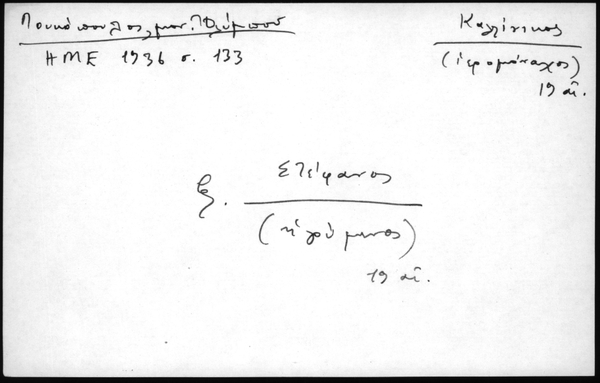 Πουλόπουλος, μον. Ὀλύμπου
ΗΜΕ 1936 σ. 133
Καλλίνικος
(ἱερομόναχος)
19 αἰ.
Στέφανος
(ἡγούμενος)
19 αἰ.